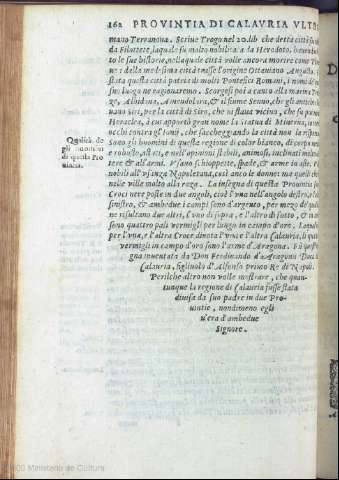 162 PROVINTIA DI CALAVRIA VLT
mano Terranova. Scriue Trogo nel 20. lib che detta città
da Filottete, laqual fu molto nobilitata da Herodoto,
te le sue historie, nellaquale città volle ancora morire come
ne: della medesima città trasse l'origine Ottauiano
stata questa città patria di molti Pontefici Romani, i nomi
sno luogo ne ragionaremo. Scorgesi poi a canto alla marina
zo, Albidona, Amendolara, & il fiume Senno, che gli antichi
uano Siri, per la città di Siro, che vi staua vicina, che fu
Heraclea, à cui apportò gran nome la statua di Minerua,
occhi contra gl'Ionij, che saccheggiando la città non la
Sono gli huomini di questa regione di color bianco, di corpo
e robusto, astuti, e nell'opinioni stabili, animosi, inclinati
tere & all'armi. Vsano schioppette, spade, & arme in aste,
nobili all'vsanza Napoletana, così anco le donne: ma quelli
nelle ville molto alla roza. La insegna di questa Prouintia
Croci nere poste in due angoli, cioè l'vna nell'angolo destro,
sinistro, & ambedue i campi sono d'argento, per mezo de'
ne risultano due altri, l'vno di sopra, e l'altro di sotto, &
sono quattro pali vermigli per lungo in campo d'oro.
per l'vna, e l'altra Croce dinota l'vna e l'altra Calauria,
vermigli in campo d'oro sono l'arme d'Aragona. Fù
gna inuentata da Don Ferdinando d'Aragona Duca
Calauria, figliuolo d'Alfonso primo Re di Napoli.
Perilche altro non volle mostrare, che quan-
tunque la regione di Calauria fusse stata
diuisa da suo padre in due Pro-
uintie, nondimeno egli
n'era d'ambedue
Signore.
Qualità de
gli huomini
di questa Pro
uintia.
Ministerio de Cultura